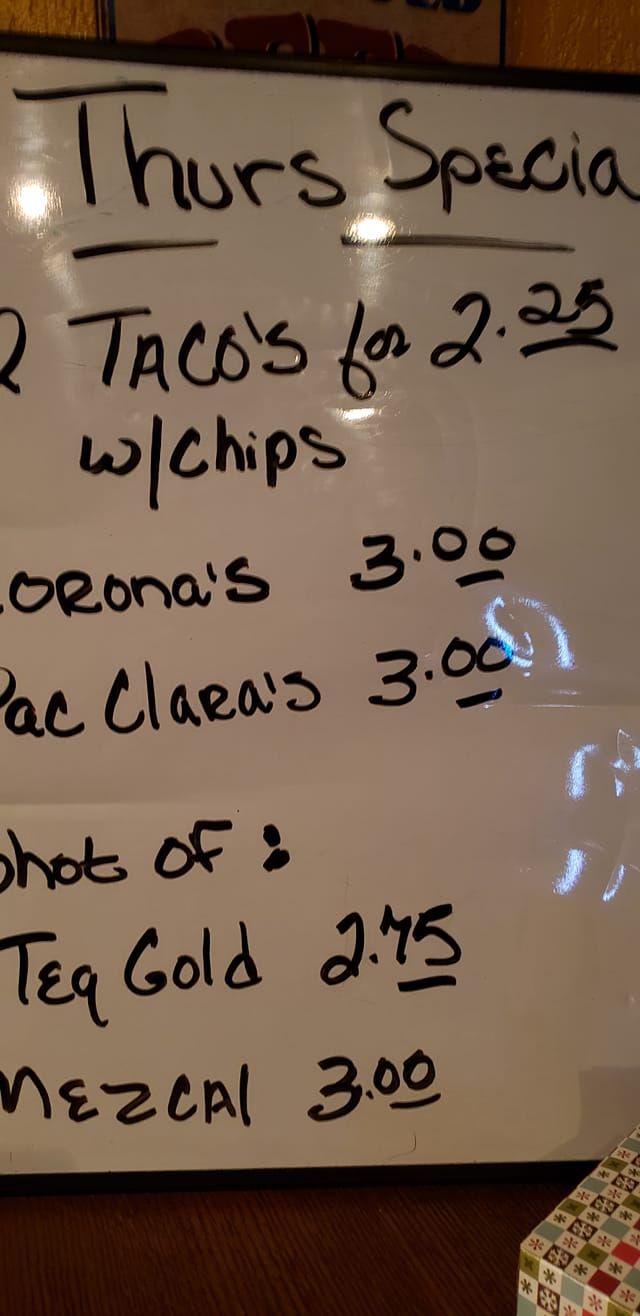 Thurs Specia
2 TACO'S for 2.25
w/chips
orona's 3.00
Pac Clara's 3.00
Shot of :
Teq Gold 2.75
MEZCAL 3.00